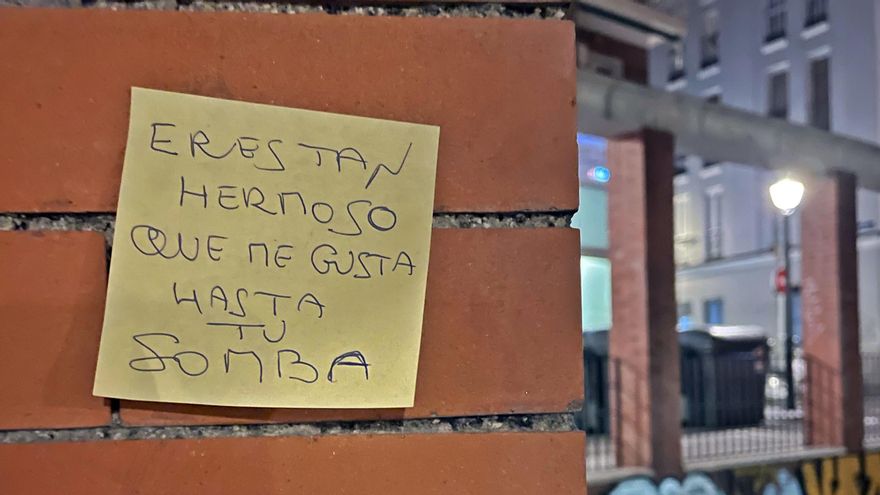 ERES TAN
HERMOSO
QUE ME GUSTA
HASTA
TU
SOMBA